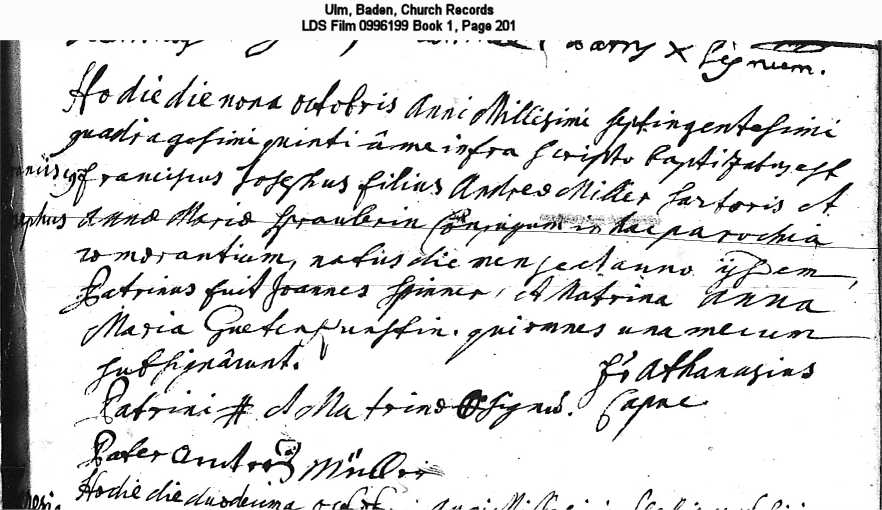 Ulm, Baden, Church Records
LDS Film 0996199 Book 1, Page 201
X Signum.
Hodie die nona octobris anni Millesimi septingentesimi
quadragesimi quinti à me infra scripto baptizatus est
franciscus Josephus filius Andreæ Miller sartoris et
annæ Mariæ sprauberin Conjugum in hac parochia
commorantium, natus die mense et anno ijsdem,
Patrinus fuit Joannes spinner, et Matrina anna
Maria qui omnes una mecum
subsignârunt.
fr Athanasius
Patrini # et Matrinæ O signū. Capuc
Pater andreas Müller
Hodie die duodecima